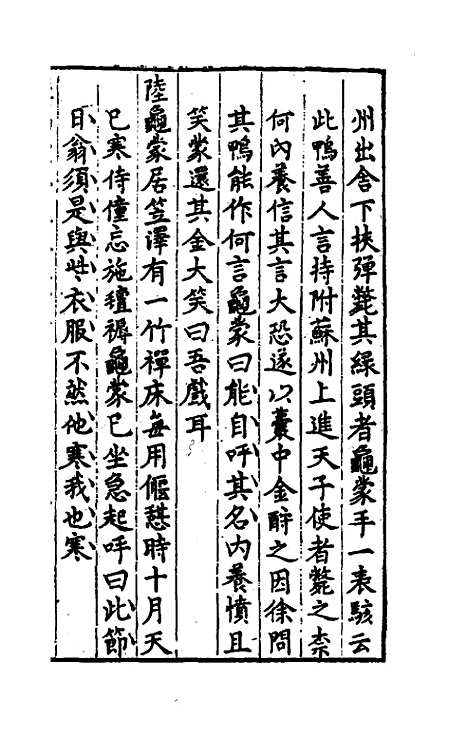 州出舍下挾彈斃其綠頭者龜蒙手一表駭云
此鴨善人言持附蘇州上進天子使者斃之柰
何內養信其言大恐遂以囊中金酧之因徐問
其鴨能作何言龜蒙曰能自呼其名內養憤且
笑蒙還其金大笑曰吾戲耳
陸龜蒙居笠澤有一竹禪床每用偃憇時十月天
已寒侍僮忘施氊褥龜蒙已坐急起呼曰此節
日翁須是與些衣服不然他寒我也寒